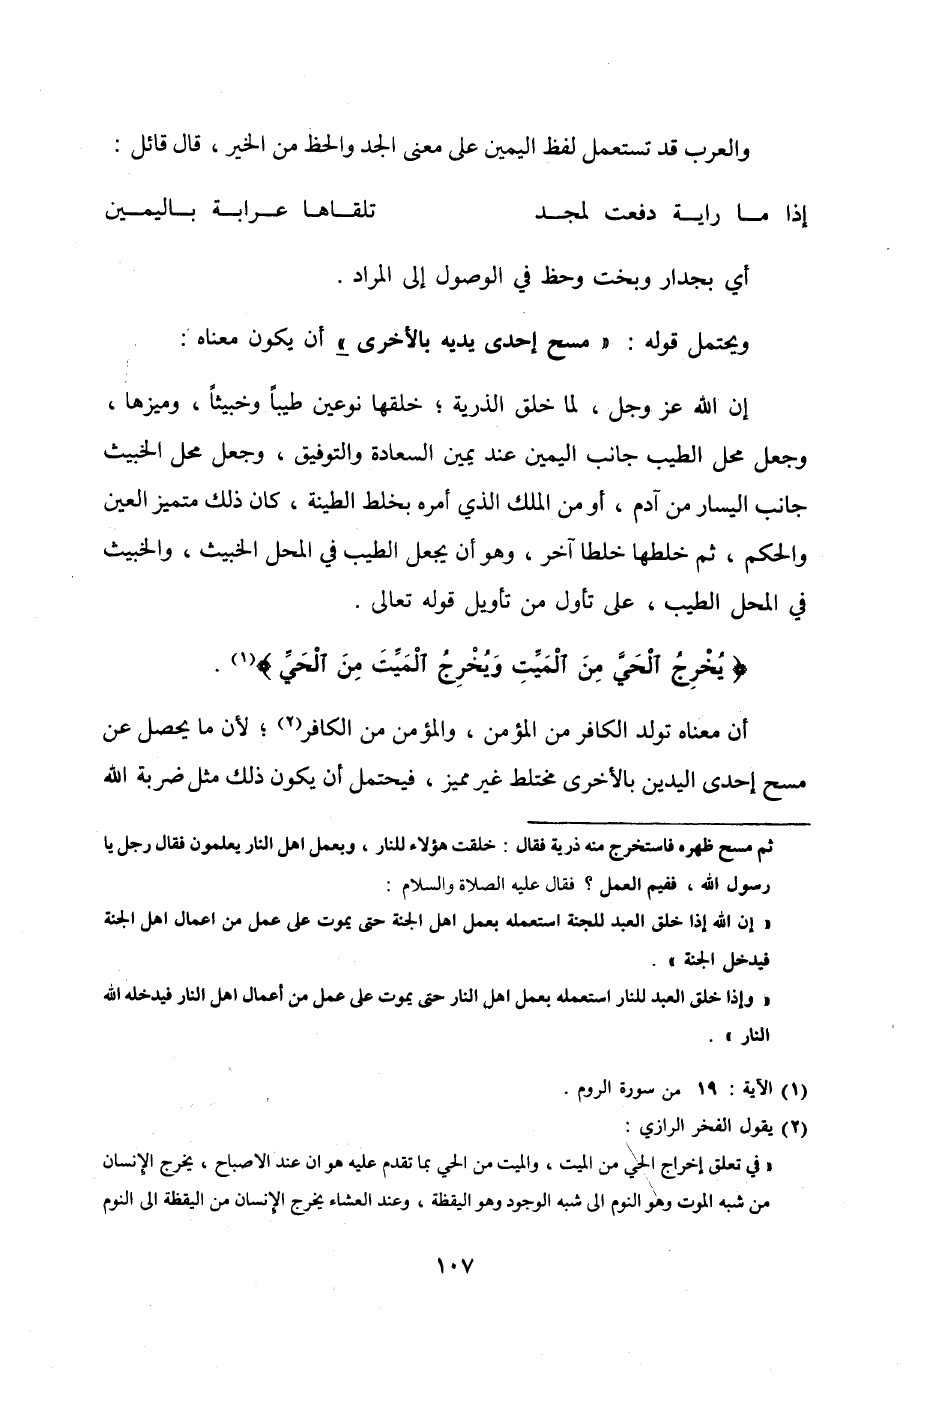 والعرب قد تستعمل لفظ اليمين على معنى الجد والحظ من الخير ، قال قائل :
إذا مـا رايـة دفعت لمجـد تلقـاهـا عـرابـة بـاليمـين
أي بجدار وبخت وحظ في الوصول إلى المراد .
ويحتمل قوله : « مسح إحدى يديه بالأخرى » أن يكون معناه :
إن الله عز وجل ، لما خلق الذرية ؛ خلقها نوعين طيباً وخبيثاً ، وميزها ،
وجعل محل الطيب جانب اليمين عند يمين السعادة والتوفيق ، وجعل محل الخبيث
جانب اليسار من آدم ، أو من الملك الذي أمره بخلط الطينة ، كان ذلك متميز العين
والحكم ، ثم خلطها خلطا آخر ، وهو أن يجعل الطيب في المحل الخبيث ، والخبيث
في المحل الطيب ، على تأول من تأويل قوله تعالى .
﴿ يُخْرِجُ ٱلْحَيَّ مِنَ ٱلْمَيِّتِ وَيُخْرِجُ ٱلْمَيِّتَ مِنَ ٱلْحَيِّ ﴾(١) .
أن معناه تولد الكافر من المؤمن ، والمؤمن من الكافر(٢) ؛ لأن ما يحصل عن
مسح إحدى اليدين بالأخرى مختلط غير مميز ، فيحتمل أن يكون ذلك مثل ضربة الله
ثم مسح ظهره فاستخرج منه ذرية فقال : خلقت هؤلاء للنار ، وبعمل اهل النار يعلمون فقال رجل يا
رسول الله ، ففيم العمل ؟ فقال عليه الصلاة والسلام :
« إن الله إذا خلق العبد للجنة استعمله بعمل اهل الجنة حتى يموت على عمل من اعمال اهل الجنة
فيدخل الجنة » .
« وإذا خلق العبد للنار استعمله بعمل اهل النار حتى يموت على عمل من أعمال اهل النار فيدخله الله
النار » .
(١) الآية : ١٩ من سورة الروم .
(٢) يقول الفخر الرازي :
« في تعلق إخراج الحي من الميت ، والميت من الحي بما تقدم عليه هو ان عند الاصباح ، يخرج الإنسان
من شبه الموت وهو النوم الى شبه الوجود وهو اليقظة ، وعند العشاء يخرج الإنسان من اليقظة الى النوم
١٠٧